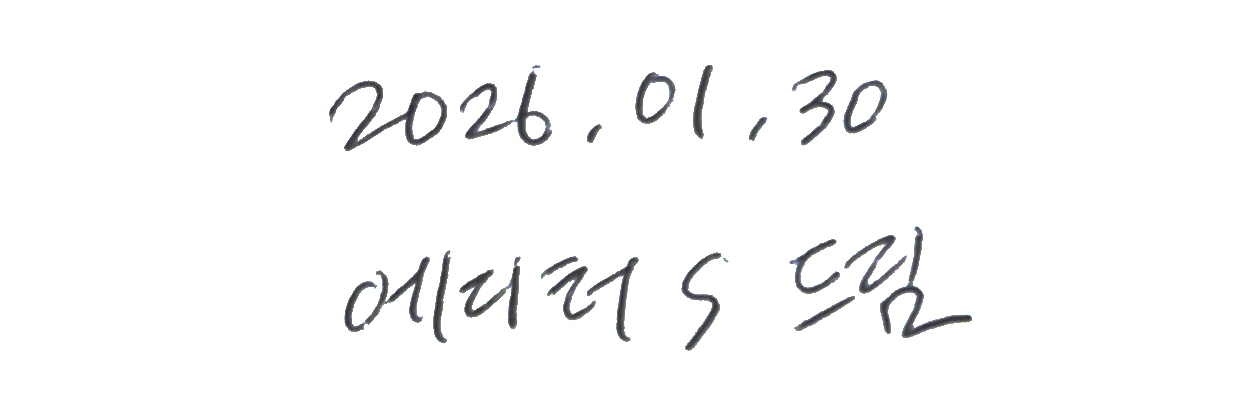 2026.01.30
에디터 S 드림